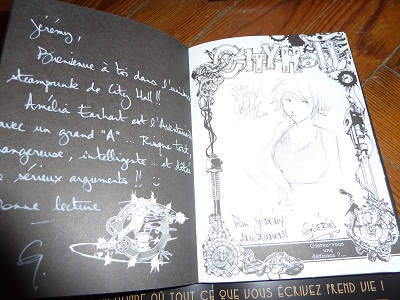 Jérémy,
Bienvenue à toi dans l'univers
steampunk de City Hall !!
Amélia Earhart est l'Aventurière
avec un grand "A"... Risque tout,
dangereuse, intelligente... et dotée
de sérieux arguments !!
Bonne lecture
G.
CITY HALL
Pour Jérémy
Amicalement
Guérin
Oserez-vous
une
dédicace ?...
OÙ TOUT CE QUE VOUS ÉCRIVEZ PREND VIE !